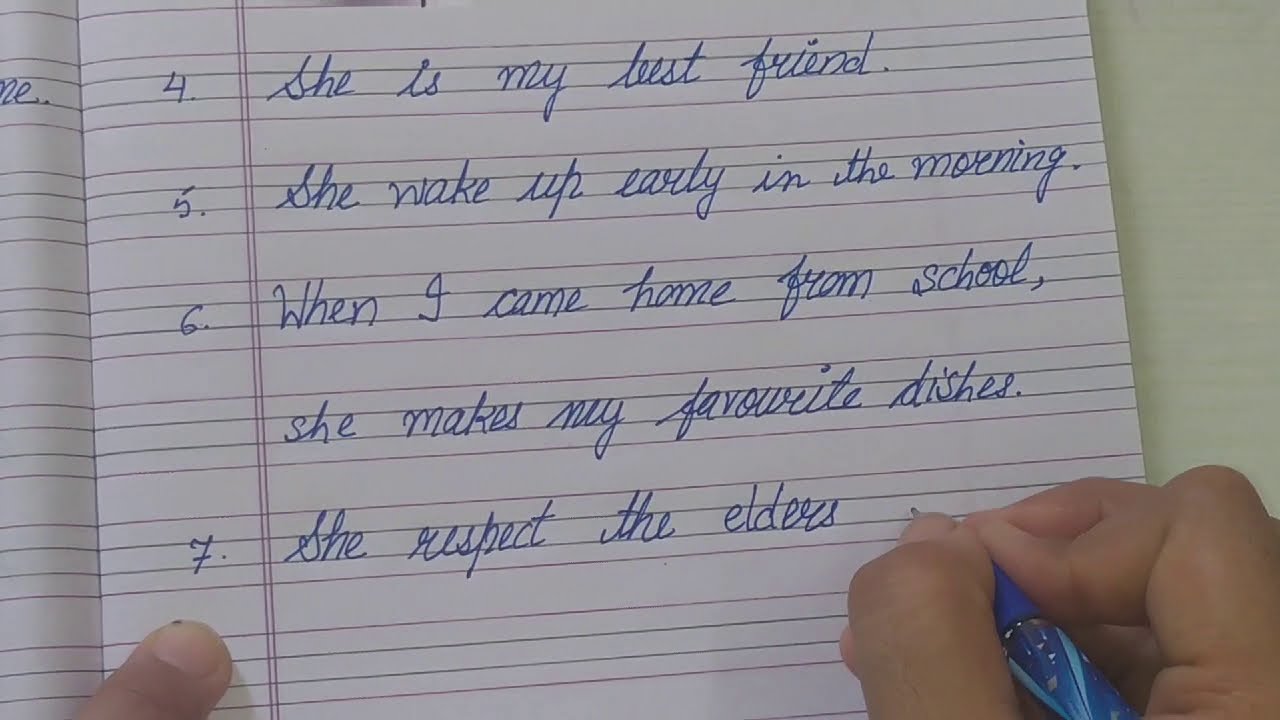 ne..
4. She is my best friend.
5. She wake up early in the morning.
6. When I came home from school,
she makes my favourite dishes.
7. She respect the elders